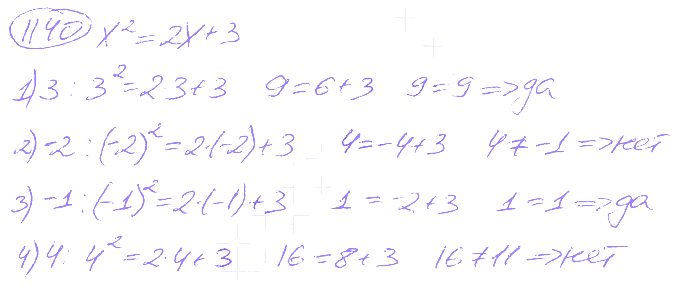 1140 x² = 2x + 3
1) 3 : 3² = 2·3 + 3 9 = 6 + 3 9 = 9 => да
2) -2 : (-2)² = 2·(-2) + 3 4 = -4 + 3 4 ≠ -1 => нет
3) -1 : (-1)² = 2·(-1) + 3 1 = -2 + 3 1 = 1 => да
4) 4 : 4² = 2·4 + 3 16 = 8 + 3 16 ≠ 11 => нет